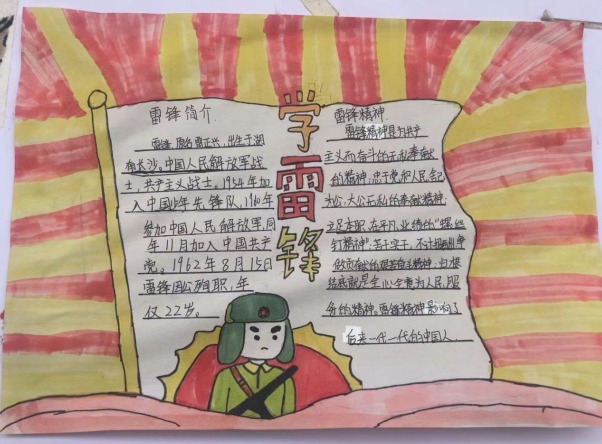 学雷锋
雷锋简介
雷锋原名雷正兴,出生于湖
南长沙,中国人民解放军战
士、共产主义战士。1954年加
入中国少年先锋队,1960年
参加中国人民解放军,同
年11月加入中国共产
党。1962年8月15日
雷锋因公殉职,年
仅22岁。
雷锋精神
雷锋精神是为共产
主义而奋斗的无私奉献
的精神,忠于党和人民、舍己
为公、大公无私的奉献精神;
立足本职、在平凡业绩的“螺丝
钉精神”,苦干实干、不计报酬、争
做贡献的艰苦奋斗精神,归根
结底就是全心全意为人民服
务的精神。雷锋精神影响了
后来一代一代的中国人.